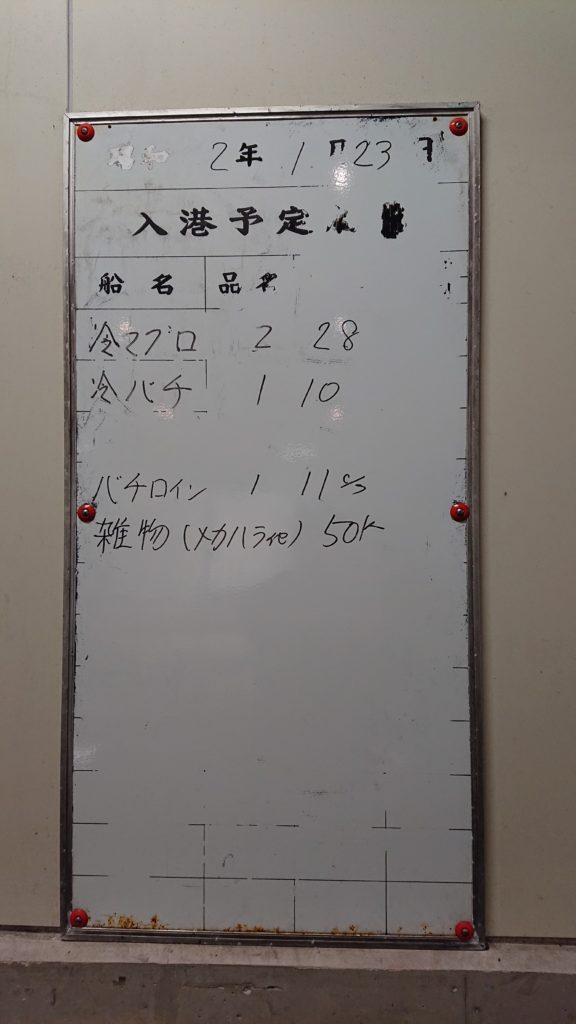 昭和 2年 1月23日
入港予定
船名 品名
冷マグロ 2 28
冷バチ 1 10
バチロイン 1 11 c/s
雑物(メカハラ他) 50K